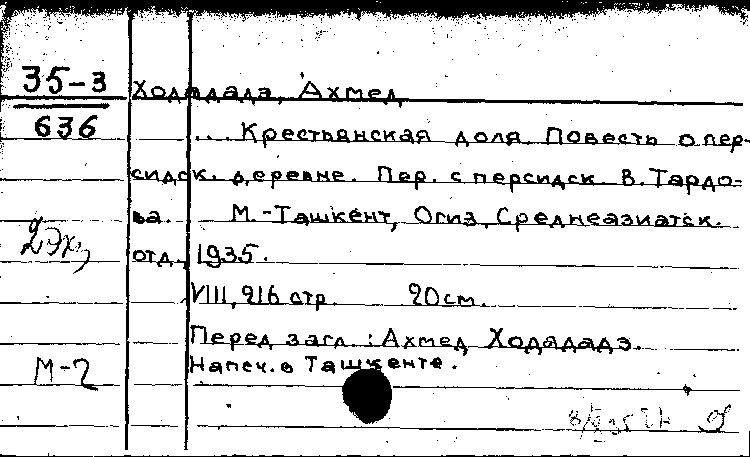 35-3
636
Ходадада, Ахмед
.... Крестьянская доля. Повесть о пер-
сидск. деревне. Пер. с персидск. В. Тардо-
ва. М.-Ташкент, Огиз, Среднеазиатск.
2 экз
отд., 1935.
VIII, 216 стр. 20 см.
Перед загл.: Ахмед Ходададэ.
М-2
Напеч. в Ташкенте.